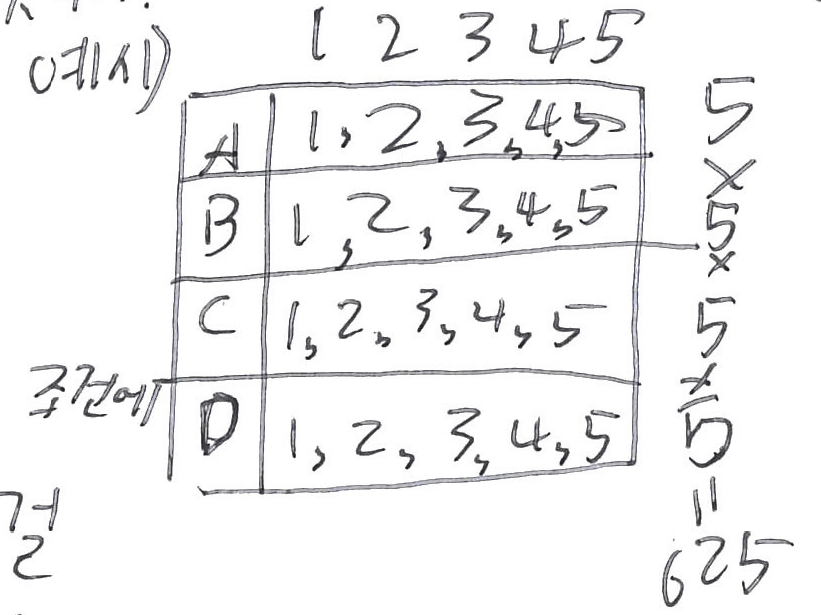 예시) 1 2 3 4 5
A 1, 2, 3, 4, 5 5
×
B 1, 2, 3, 4, 5 5
×
C 1, 2, 3, 4, 5 5
×
조건에
D 1, 2, 3, 4, 5 5
=
625